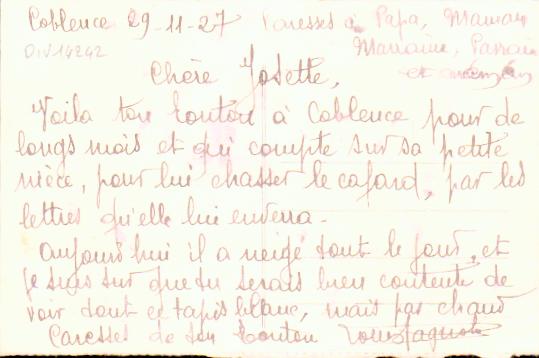 Coblence 29-11-27 Caresses à Papa, Maman
Marraine, Parrain
DIV14242
et
Chère Josette,
Voila ton tonton à Coblence pour de
longs mois et qui compte sur sa petite
nièce, pour lui chasser le cafard, par les
lettres qu'elle lui enverra-
Aujourd'hui il a neigé tout le jour, et
je suis sur que tu serais bien contente de
voir tout ce tapis blanc, mais pas chaud
Caresses de ton tonton